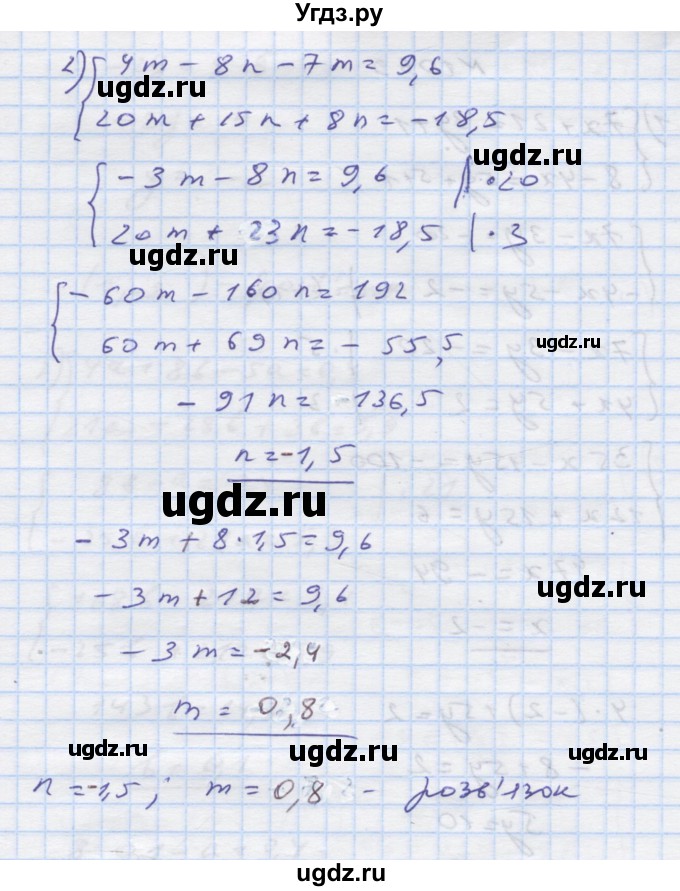 Угдз.ру
2) { 4m - 8n - 7m = 9,6
ugdz.ru
20m + 15n + 8n = -18,5
ugdz.ru
{ - 3m - 8n = 9,6 | · 20
20m + 23n = -18,5 | · 3
ugdz.ru
{ - 60m - 160n = 192
60m + 69n = - 55,5
ugdz.ru
- 91n = -136,5
n = -1,5
ugdz.ru
- 3m + 8 · 1,5 = 9,6
ugdz.ru
- 3m + 12 = 9,6
- 3m = -2,4
m = 0,8
ugdz.ru ugdz.ru
n = -1,5 ; m = 0,8 - розв'язок
ugdz.ru